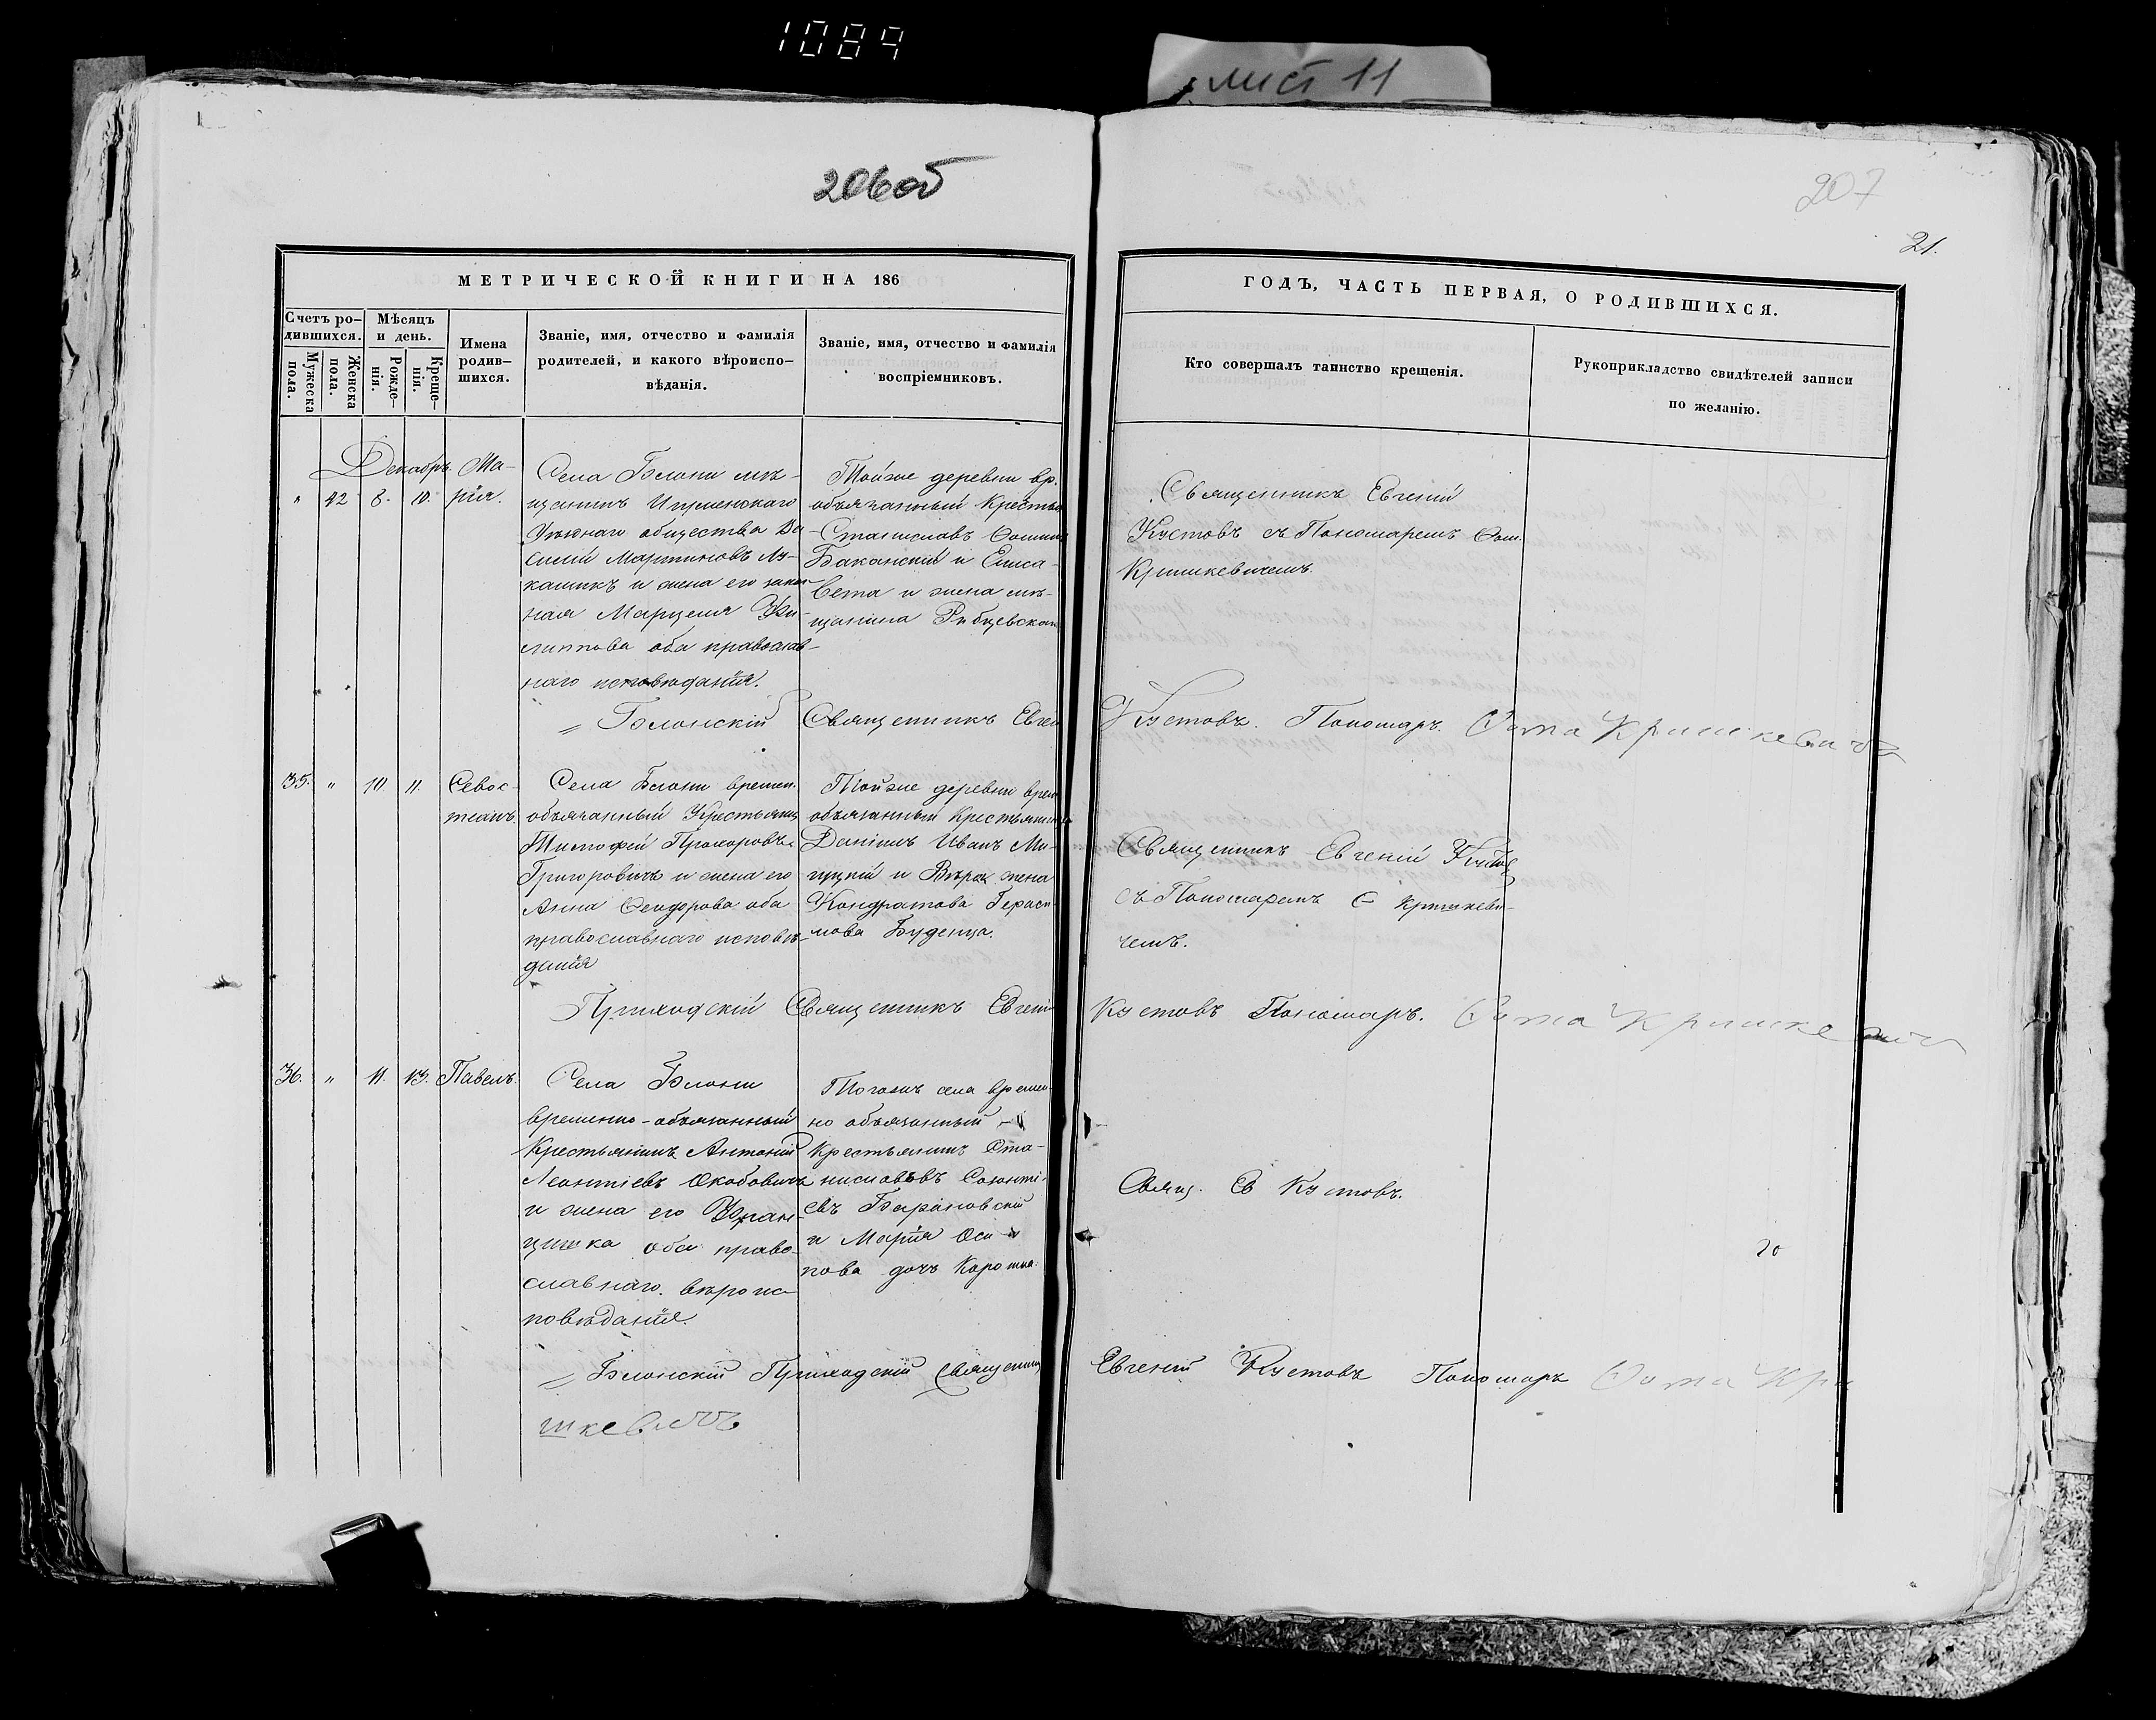 1089
лист 11
206об
207
21.
МЕТРИЧЕСКОЙ КНИГИ НА 186
Счетъ ро-
дившихся.
Мужеска
пола.
Женска
пола.
Мѣсяцъ
и день.
Рожде-
нія.
Креще-
нія.
Имена
родив-
шихся.
Званіе, имя, отчество и фамилія
родителей, и какого вѣроиспо-
вѣданія.
Званіе, имя, отчество и фамилія
воспріемниковъ.
ГОДЪ, ЧАСТЬ ПЕРВАЯ, О РОДИВШИХСЯ.
Кто совершалъ таинство крещенія.
Рукоприкладство свидѣтелей записи
по желанію.
Декабрь.
" 42 8. 10.
Ма-
рія.
Села Блони мѣ-
щанинъ Игуменскаго
общества Ва-
силій Мартиновъ Лу-
кашикъ и жена его закон
ная Марцеля Фи-
липпова оба православ-
наго исповѣданія.
Тойже деревни вр.
обязанный Крестья
Станиславъ Ѳомин
Баканскій и Елиса-
вета и жена мѣ-
щанина
Священникъ Евгеній
Кустовъ съ Пономаремъ Ѳом.
Кришкевичемъ.
Блонскій Священникъ Евген
Кустовъ. Пономарь. Ѳома Кришкевичъ
35. " 10 11.
Севос-
теанъ.
Села Блони времен.
обязанный Крестьянин
Тимофей Прохоровъ
Григоровичъ и жена его
Анна Ѳеодорова оба
православнаго исповѣ-
данія
Тойже деревни врем
обязанный Крестьянинъ
Даніилъ Иванъ Ми-
гуцкій и Вѣра жена
Кондратова Гераси-
мова Буденца.
Священникъ Евгеній Кустов
съ Пономаремъ Ѳ Кришкеви-
чемъ.
Приходскій Священникъ Евгеній
Кустовъ Пономарь. Ѳома Кришкевичъ
36. " 11. 13. Павелъ.
Села Блони
временно-обязанный
Крестьянинъ Антоній
Леонтіевъ Якобовичъ
и жена его Фран-
цишка оба право-
славнаго. вѣроис-
повѣданія.
Тогожъ села времен-
но обязанный
Крестьянинъ Ста-
ниславовъ
евъ Барановскій
и Марія Оси-
пова дочь
Свящ. Ев Кустовъ.
20
Блонскій Приходскій Священник
Евгеній Кустовъ Пономарь Ѳома Кри
шкевичъ